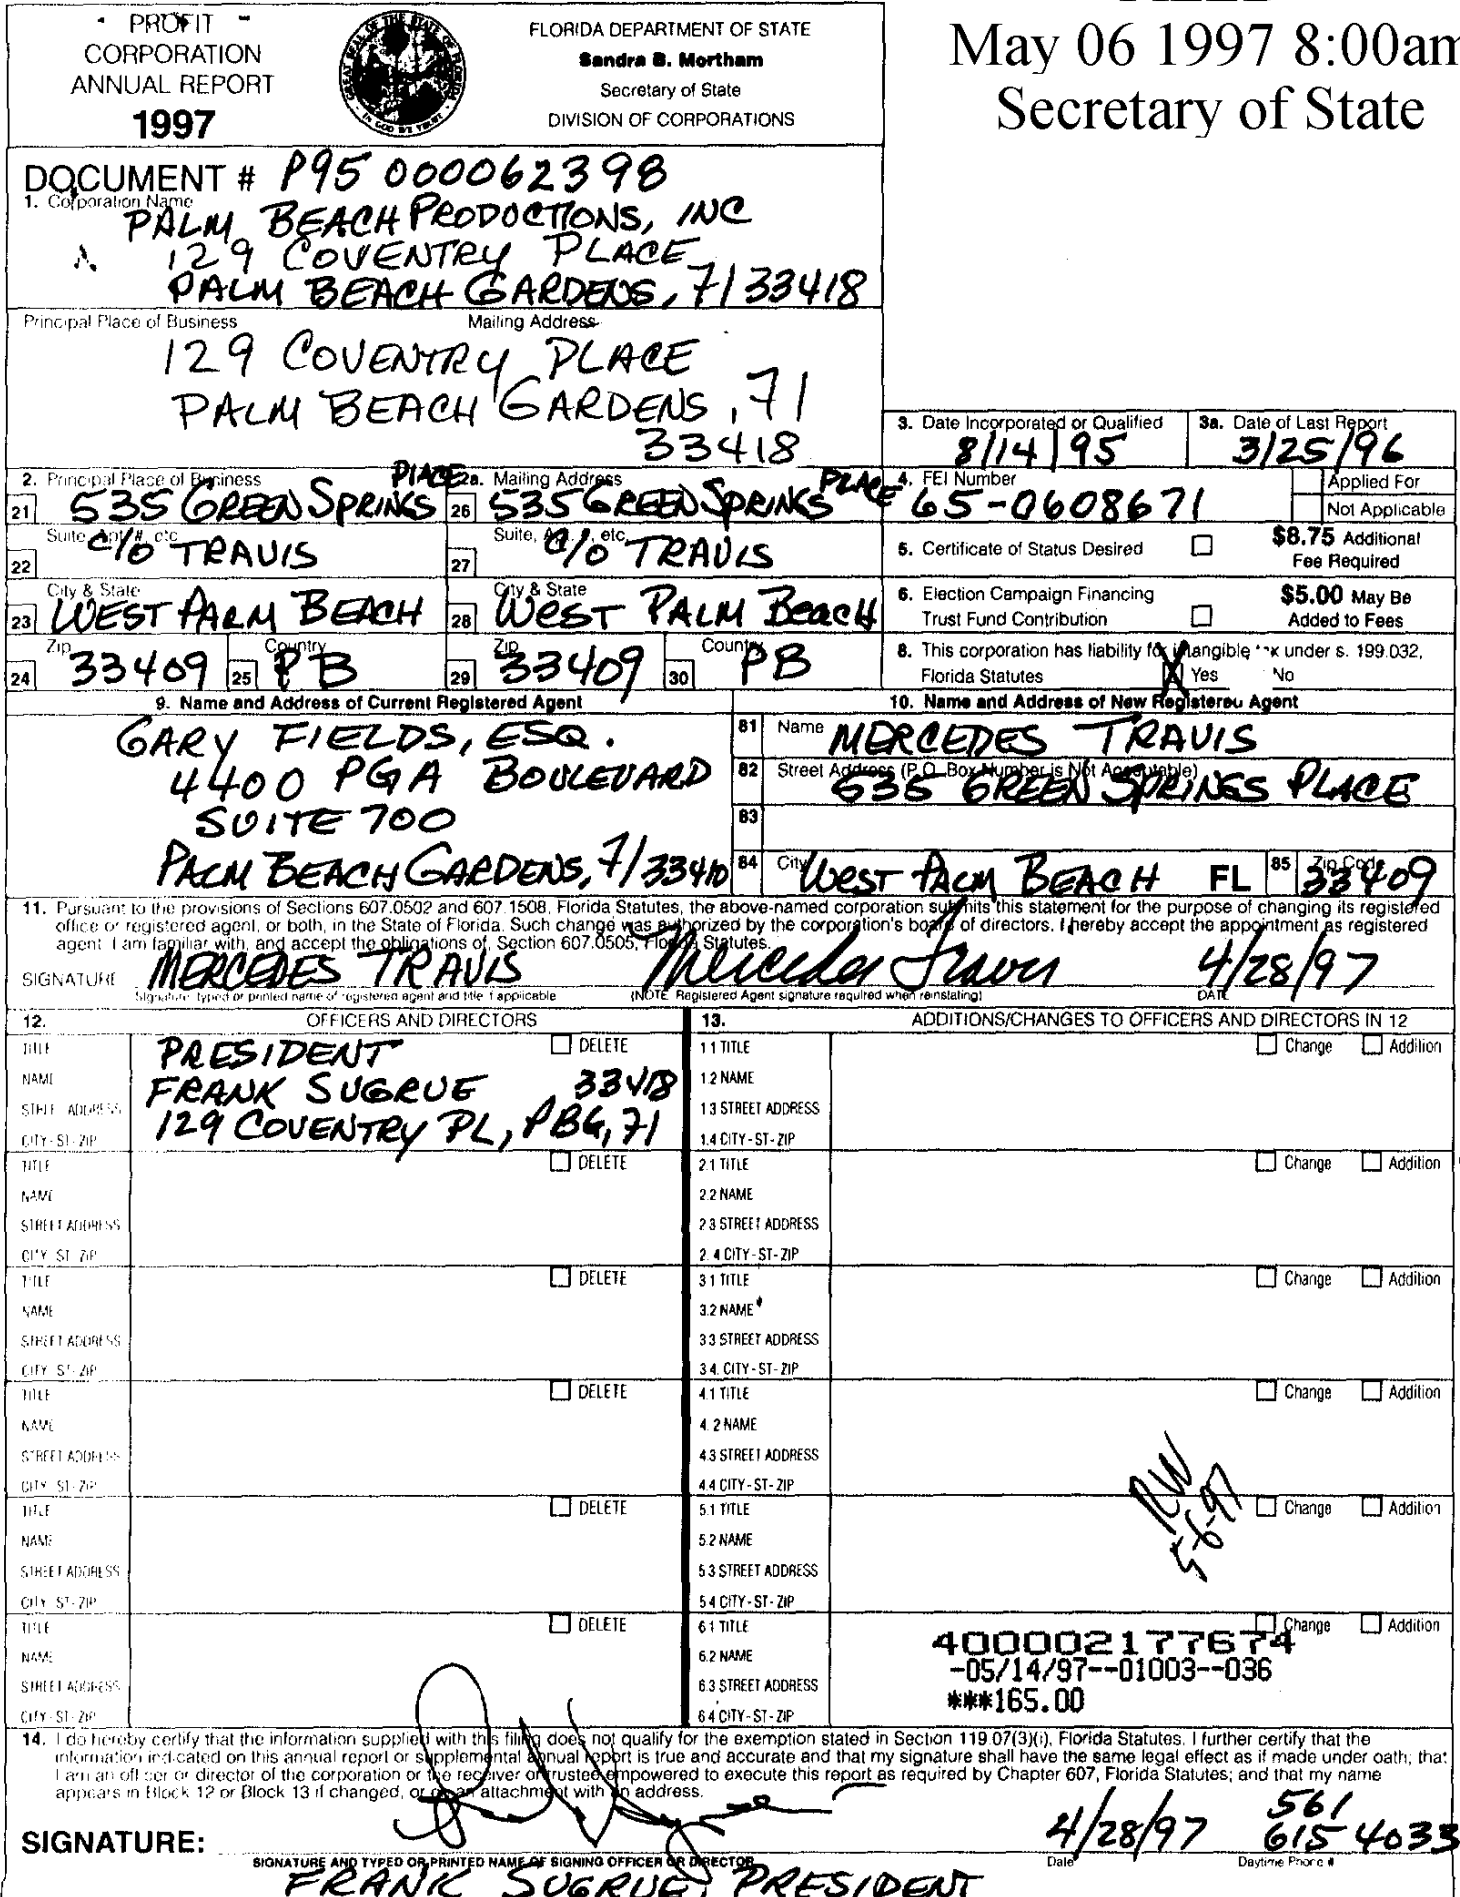 PROFIT
CORPORATION
ANNUAL REPORT
1997
FLORIDA DEPARTMENT OF STATE
Sandra B. Mortham
Secretary of State
DIVISION OF CORPORATIONS
May 06 1997 8:00am
Secretary of State
DOCUMENT # P95 000062398
1. Corporation Name
PALM BEACH PRODUCTIONS, INC
129 COVENTRY PLACE
PALM BEACH GARDENS, Fl 33418
Principal Place of Business Mailing Address
129 COVENTRY PLACE
PALM BEACH GARDENS, Fl
33418
3. Date Incorporated or Qualified
8/14/95
3a. Date of Last Report
3/25/96
2. Principal Place of Business
21 535 GREEN SPRINGS PLACE
2a. Mailing Address
26 535 GREEN SPRINGS PLACE
4. FEI Number
65-0608671
Applied For
Not Applicable
Suite, Apt. #, etc.
22 C/O TRAVIS
Suite, Apt. #, etc.
27 C/O TRAVIS
5. Certificate of Status Desired
$8.75 Additional
Fee Required
City & State
23 WEST PALM BEACH
City & State
28 WEST PALM BEACH
6. Election Campaign Financing
Trust Fund Contribution
$5.00 May Be
Added to Fees
Zip
24 33409
Country
25 PB
Zip
29 33409
Country
30 PB
8. This corporation has liability for intangible tax under s. 199.032,
Florida Statutes X Yes No
9. Name and Address of Current Registered Agent
GARY FIELDS, ESQ.
4400 PGA BOULEVARD
SUITE 700
PALM BEACH GARDENS, Fl 33410
10. Name and Address of New Registered Agent
81 Name MERCEDES TRAVIS
82 Street Address (P.O. Box Number is Not Acceptable)
535 GREEN SPRINGS PLACE
83
84 City WEST PALM BEACH FL 85 Zip Code 33409
11. Pursuant to the provisions of Sections 607.0502 and 607.1508, Florida Statutes, the above-named corporation submits this statement for the purpose of changing its registered
office or registered agent, or both, in the State of Florida. Such change was authorized by the corporation's board of directors. I hereby accept the appointment as registered
agent. I am familiar with, and accept the obligations of, Section 607.0505, Florida Statutes.
SIGNATURE MERCEDES TRAVIS Mercedes Travis 4/28/97
Signature, typed or printed name of registered agent and title if applicable (NOTE: Registered Agent signature required when reinstating) DATE
12. OFFICERS AND DIRECTORS
13. ADDITIONS/CHANGES TO OFFICERS AND DIRECTORS IN 12
TITLE PRESIDENT DELETE
NAME FRANK SUGRUE 33418
STREET ADDRESS 129 COVENTRY PL, PBG, Fl
CITY-ST-ZIP
1.1 TITLE Change Addition
1.2 NAME
1.3 STREET ADDRESS
1.4 CITY-ST-ZIP
TITLE DELETE
NAME
STREET ADDRESS
CITY-ST-ZIP
2.1 TITLE Change Addition
2.2 NAME
2.3 STREET ADDRESS
2.4 CITY-ST-ZIP
TITLE DELETE
NAME
STREET ADDRESS
CITY-ST-ZIP
3.1 TITLE Change Addition
3.2 NAME
3.3 STREET ADDRESS
3.4. CITY-ST-ZIP
TITLE DELETE
NAME
STREET ADDRESS
CITY-ST-ZIP
4.1 TITLE Change Addition
4.2 NAME
4.3 STREET ADDRESS
4.4 CITY-ST-ZIP
RW
5-6-97
TITLE DELETE
NAME
STREET ADDRESS
CITY-ST-ZIP
5.1 TITLE Change Addition
5.2 NAME
5.3 STREET ADDRESS
5.4 CITY-ST-ZIP
TITLE DELETE
NAME
STREET ADDRESS
CITY-ST-ZIP
6.1 TITLE Change Addition
6.2 NAME
6.3 STREET ADDRESS
6.4 CITY-ST-ZIP
400002177674
-05/14/97--01003--036
***165.00
14. I do hereby certify that the information supplied with this filing does not qualify for the exemption stated in Section 119.07(3)(i), Florida Statutes. I further certify that the
information indicated on this annual report or supplemental annual report is true and accurate and that my signature shall have the same legal effect as if made under oath; that
I am an officer or director of the corporation or the receiver or trustee empowered to execute this report as required by Chapter 607, Florida Statutes; and that my name
appears in Block 12 or Block 13 if changed, or on an attachment with an address.
SIGNATURE: 4/28/97 561 615 4033
SIGNATURE AND TYPED OR PRINTED NAME OF SIGNING OFFICER OR DIRECTOR Date Daytime Phone #
FRANK SUGRUE, PRESIDENT